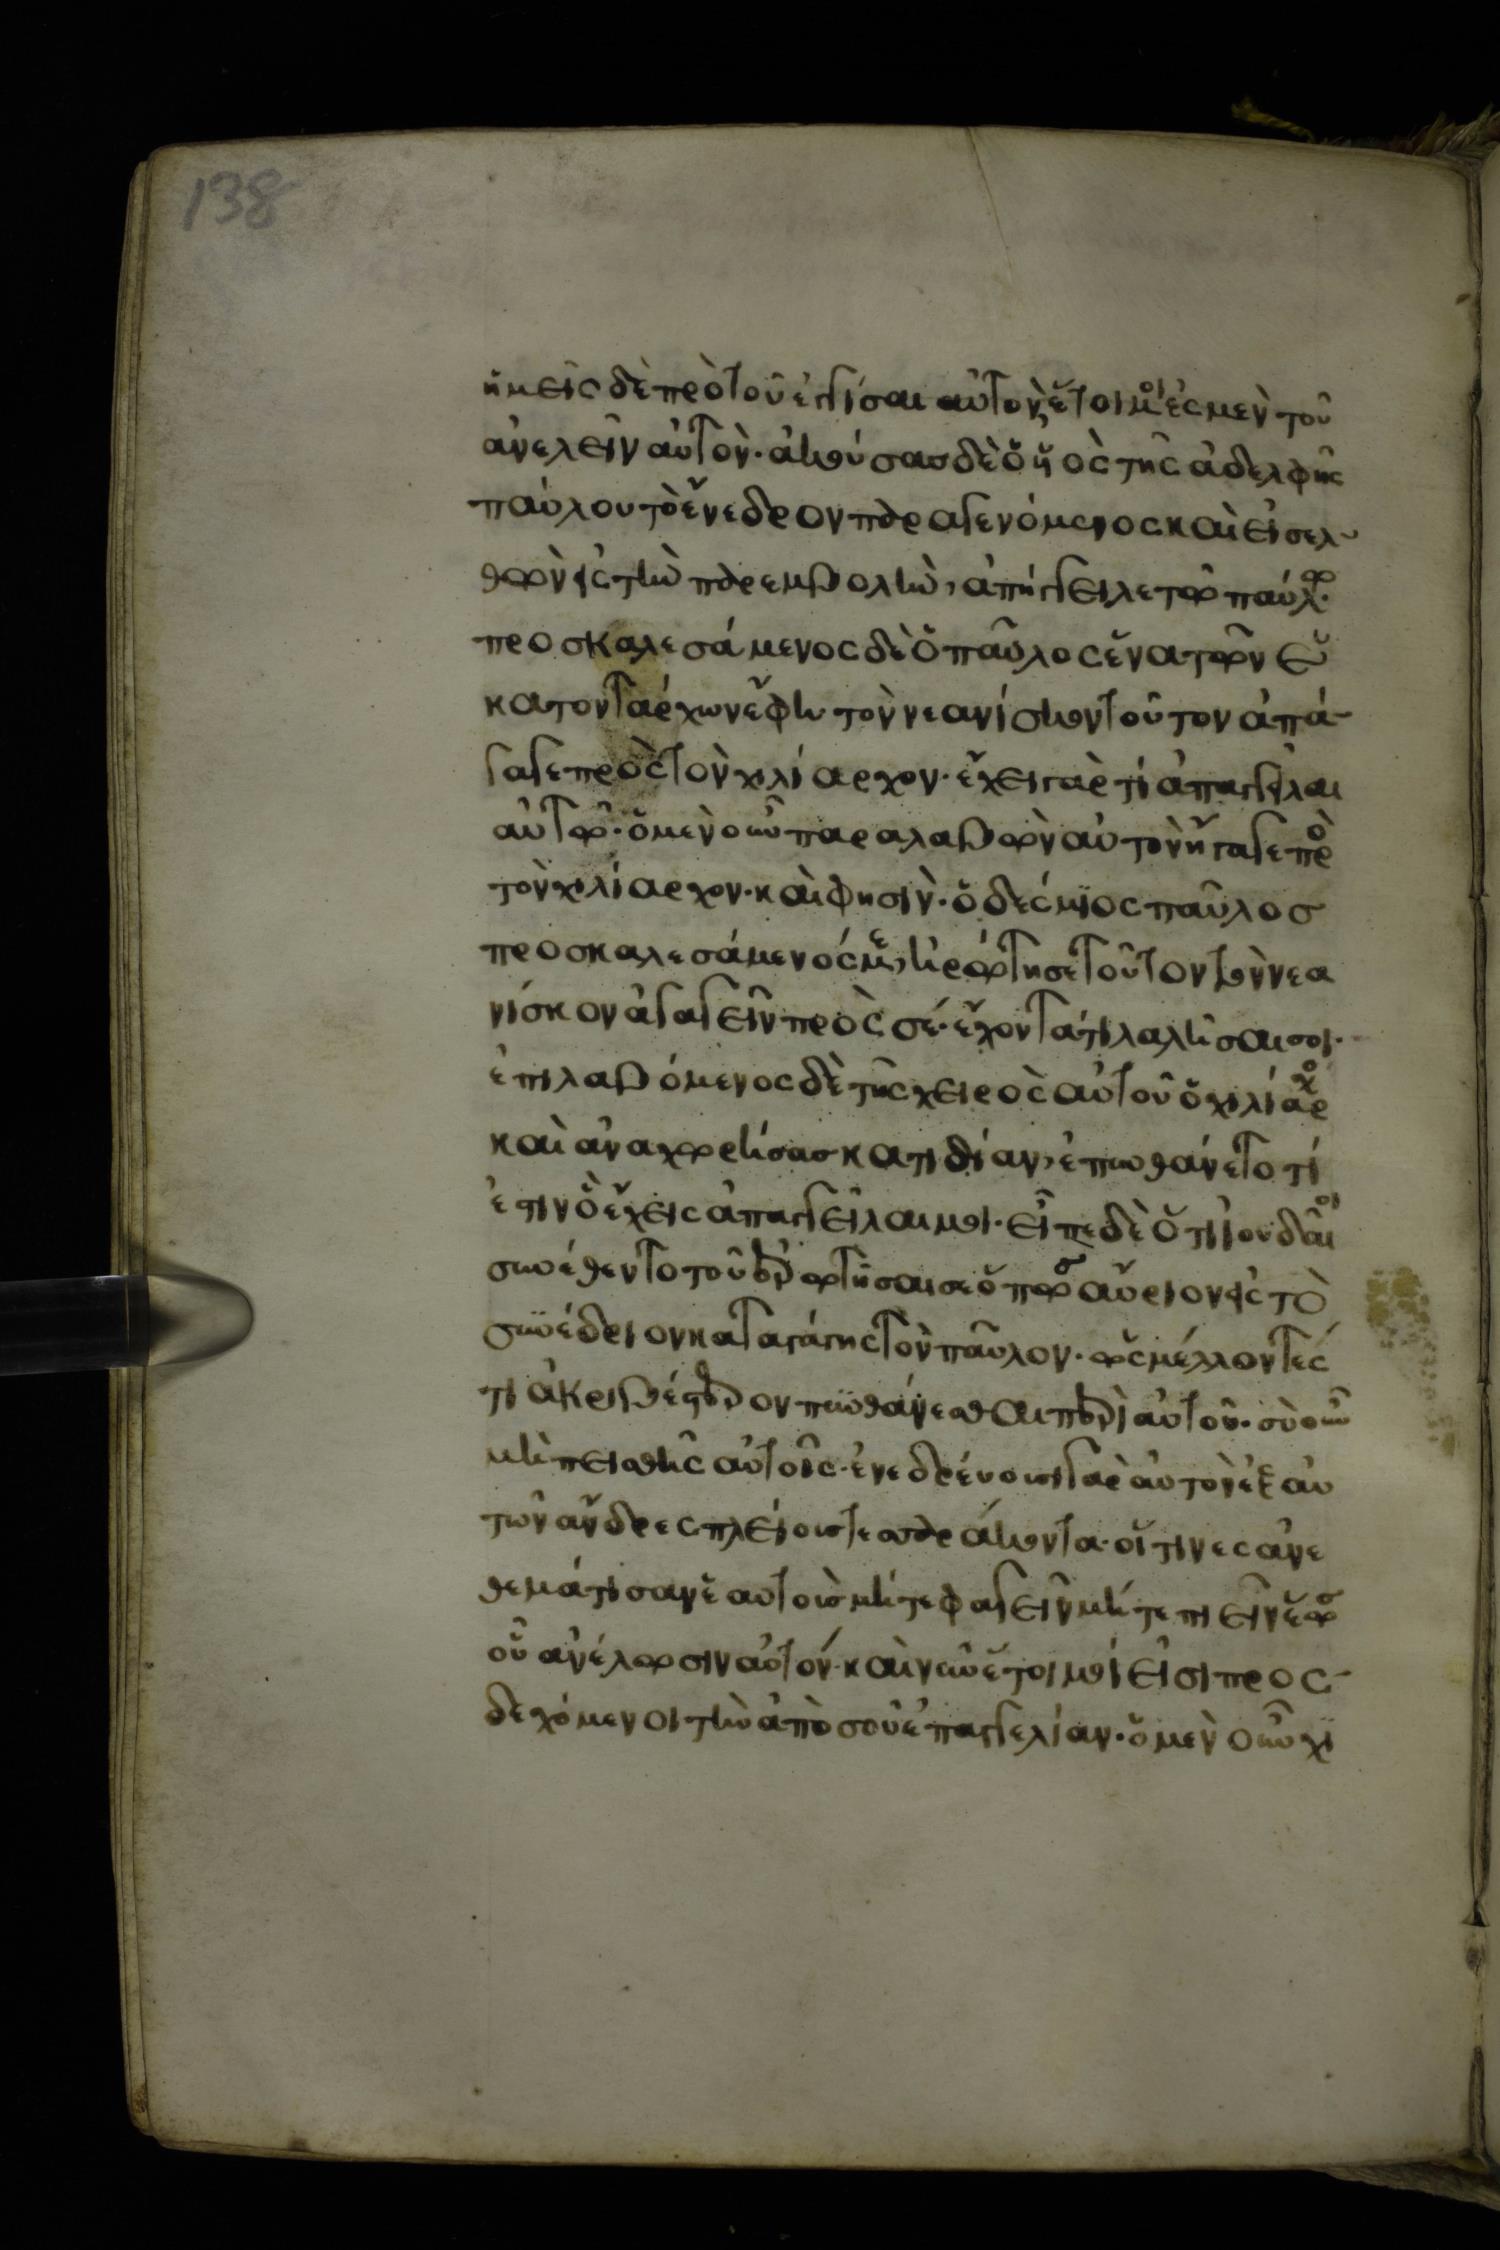 138
ἡμεῖς δὲ πρὸ τοῦ ἐγγίσαι αὐτὸν, ἕτοιμοι ἐσμὲν τοῦ
ἀνελεῖν αὐτὸν· ἀκούσας δὲ ὁ ὑιὸς τῆς ἀδελφῆς
παύλου τὸ ἔνεδρον παραγενόμενος καὶ εἰσελ
θὼν εἰς τὴν παρεμβολὴν, ἀπήγγειλε τῷ παύλῳ·
προσκαλεσάμενος δὲ ὁ παῦλος ἕνα τῶν ἑ
κατοντάρχων ἔφη τὸν νεανίσκον τοῦτον ἀπά
γαγε πρὸς τὸν χιλίαρχον· ἔχει γάρ τι ἀπαγγεῖλαι
αὐτῷ· ὁ μὲν οὖν παραλαβὼν αὐτὸν ἤγαγε πρὸ
τὸν χιλίαρχον· καὶ φησὶν· ὁ δέσμιος παῦλος
προσκαλεσάμενός με, ἠρώτησε τοῦτον τὸν νεα
νίσκον ἀγαγεῖν πρὸς σέ· ἔχοντά τι λαλῆσαι σοι·
ἐπιλαβόμενος δὲ τῆς χειρὸς αὐτοῦ ὁ χιλίαρχο
καὶ ἀναχωρήσας κατιδίαν, ἐπυνθάνετο τί
ἐστιν ὃ ἔχεις ἀπαγγεῖλαι μοι· εἶπε δὲ ὅτι ἰουδαῖοι
συνέθεντο τοῦ ἐρωτῆσαι σε ὅπως αὔριον εἰς τὸ
συνέδριον καταγάγης τὸν παῦλον· ὡς μέλλοντές
τι ἀκριβέστερον πυνθάνεσθαι περὶ αὐτοῦ· σὺ οὖν
μὴ πεισθῆς αὐτοῖς· ἐνεδρεύουσι γὰρ αὐτὸν ἐξ αὐ
τῶν ἄνδρες πλείους τεσσαράκοντα· οἵτινες ἀνε
θεμάτισαν ἑαυτοὺς μήτε φαγεῖν μήτε πιεῖν ἕως
οὗ ἀνέλωσιν αὐτόν· καὶ νῦν ἕτοιμοί εἰσι προσ
δεχόμενοι τὴν ἀπὸ σοῦ ἐπαγγελίαν· ὁ μὲν οὖν χι